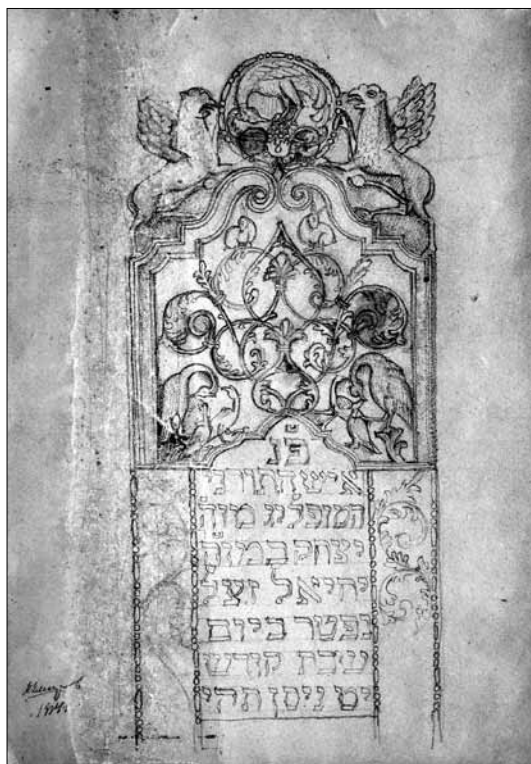 פ"נ
איש התורני
המופליג מוה
יצחק במוה
יחיאל זצל
נפטר ביום
שבת קודש
יט ניסן תהי